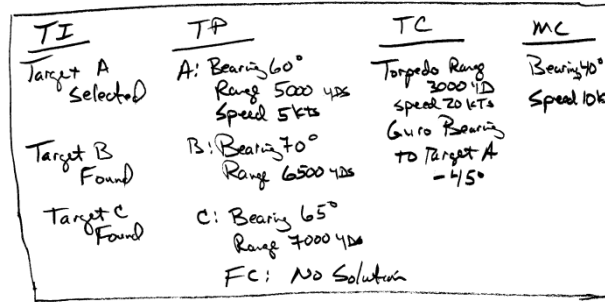 TI
Target A
Selected
Target B
Found
Target C
Found
TP
A: Bearing 60°
Range 5000 YDS
Speed 5 kts
B: Bearing 70°
Range 6500 YDS
C: Bearing 65°
Range 7000 YDS
FC: No Solution
TC
Torpedo Range
3000 YD
Speed 20 KTS
Guro Bearing
to Target A
-45°
MC
Bearing 40°
Speed 10k